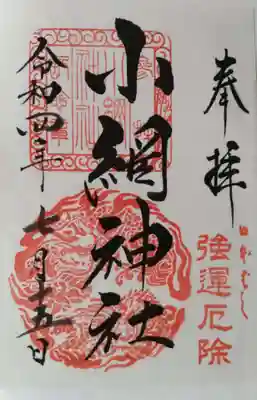 奉拝
強運厄除
小網神社
令和四年七月十五日